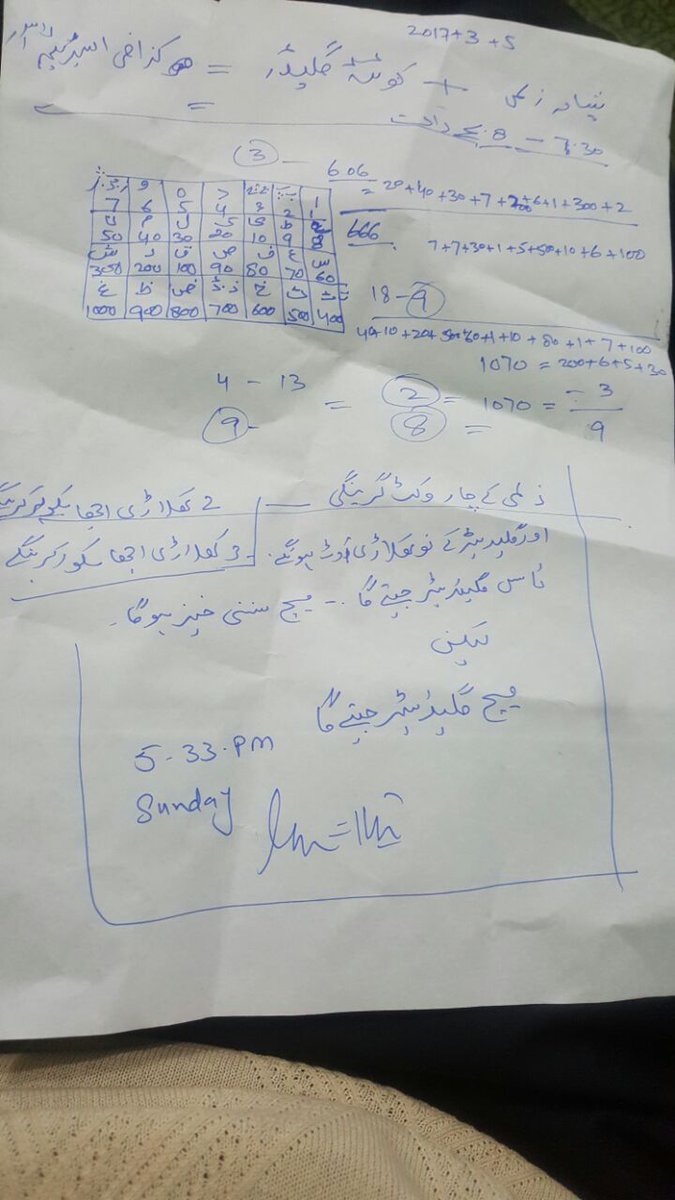 2017+3+5
پشاور زلمی + کوئٹہ گلیڈیٹر = قذافی اسٹیڈیم لاہور
7:30 - 8 بجے رات =
606 - 3
= 20+40+30+7+200+6+1+300+2
666
7+7+30+1+5+50+10+6+100
ا ب پ ج چ د ہ و ز ژ
1 2 3 4 5 6 7
ح ط ی ک ل م ن
8 9 10 20 30 40 50
س ع ف ص ق ر ش
60 70 80 90 100 200 300
ت ث خ ذ ض ظ غ
400 500 600 700 800 900 1000
18-9
+1+10+80+1+7+100
1070 = 200+6+5+30
4 - 13
9 = 2 = 1070 = 3
8 = 9
زلمی کے چار وکٹ گرینگی — 2 کھلاڑی اچھا سکور کرینگے
اور گلیڈیٹر کے نو کھلاڑی اوٹ ہونگے. 3 کھلاڑی اچھا سکور کرینگے
ٹاس گلیڈیٹر جیتے گا -- میچ سنسنی خیز ہوگا۔
لیکن
میچ گلیڈیٹر جیتے گا
5-33.PM
Sunday